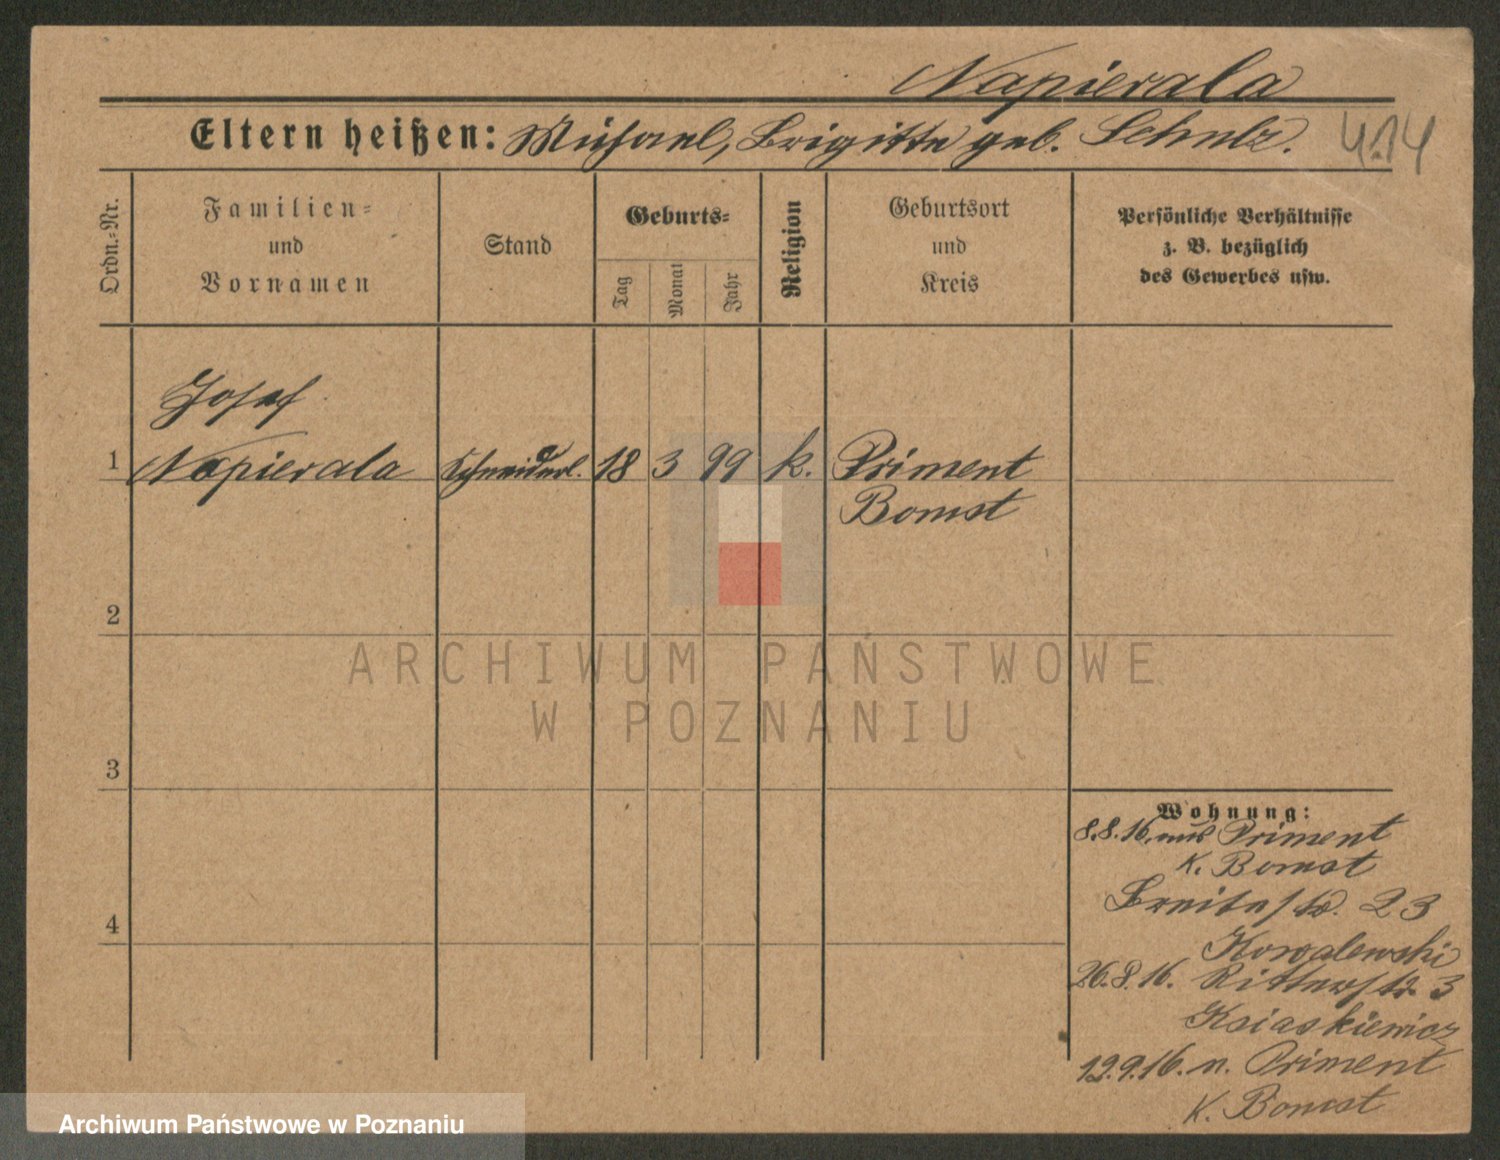 Napierala
Eltern heißen: Michael, Brigitte geb. Schulz.
4.14
Ordn.-Nr.
Familien-
und
Vornamen
Stand
Geburts-
Tag
Monat
Jahr
Religion
Geburtsort
und
Kreis
Persönliche Verhältnisse
z. B. bezüglich
des Gewerbes usw.
Josef
1 Napierala Schneiderl. 18 3 99 k. Priment
Bomst
2
3
4
ARCHIWUM PAŃSTWOWE
W POZNANIU
Wohnung:
8.8.16. aus Priment
K. Bomst
Breitestr. 23
Kowalewski
26.8.16. Ritterstr. 3
Ksiaskiewicz
12.9.16. n. Priment
K. Bomst
Archiwum Państwowe w Poznaniu